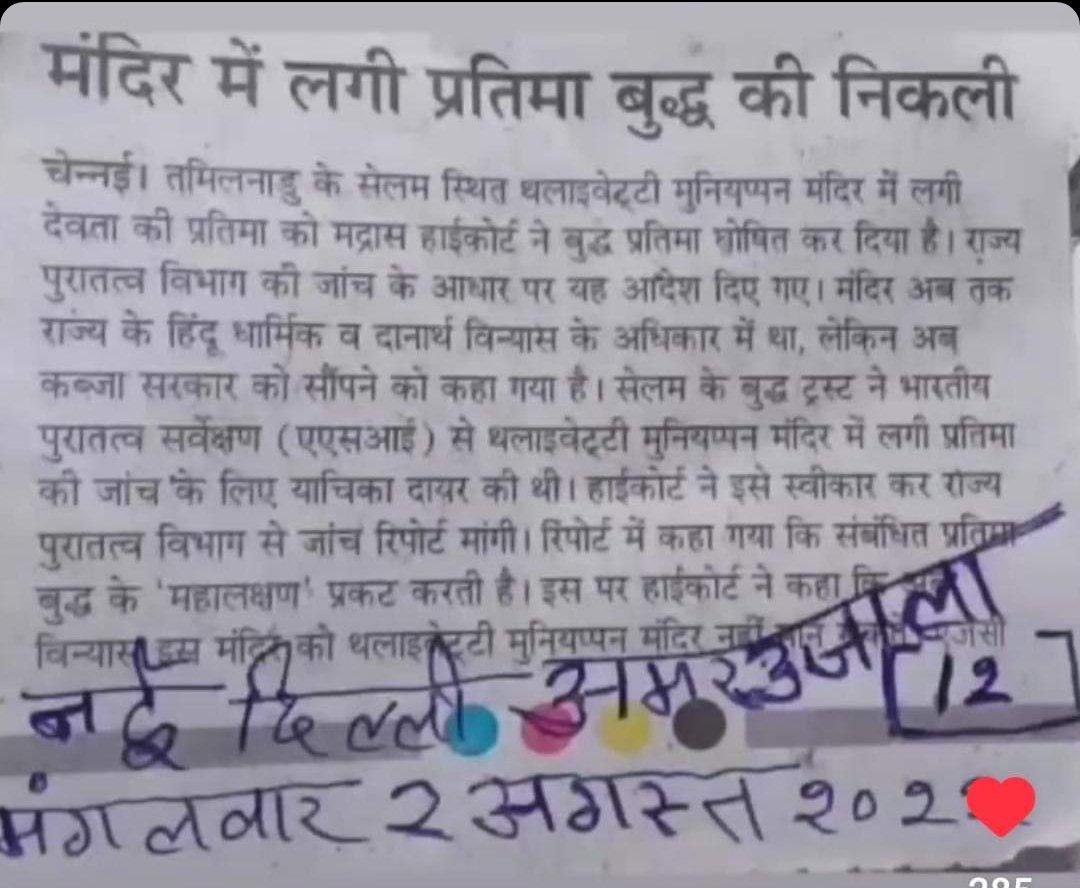 मंदिर में लगी प्रतिमा बुद्ध की निकली
चेन्नई। तमिलनाडु के सेलम स्थित थलाइवेट्टी मुनियप्पन मंदिर में लगी
देवता की प्रतिमा को मद्रास हाईकोर्ट ने बुद्ध प्रतिमा घोषित कर दिया है। राज्य
पुरातत्व विभाग की जांच के आधार पर यह आदेश दिए गए। मंदिर अब तक
राज्य के हिंदू धार्मिक व दानार्थ विन्यास के अधिकार में था, लेकिन अब
कब्जा सरकार को सौंपने को कहा गया है। सेलम के बुद्ध ट्रस्ट ने भारतीय
पुरातत्व सर्वेक्षण (एएसआई) से थलाइवेट्टी मुनियप्पन मंदिर में लगी प्रतिमा
की जांच के लिए याचिका दायर की थी। हाईकोर्ट ने इसे स्वीकार कर राज्य
पुरातत्व विभाग से जांच रिपोर्ट मांगी। रिपोर्ट में कहा गया कि संबंधित प्रतिमा
बुद्ध के 'महालक्षण' प्रकट करती है। इस पर हाईकोर्ट ने कहा कि
विन्यास इस मंदिर को थलाइवेट्टी मुनियप्पन मंदिर नहीं मान एजेंसी
नई दिल्ली अमर उजाला 12
मंगलवार 2 अगस्त